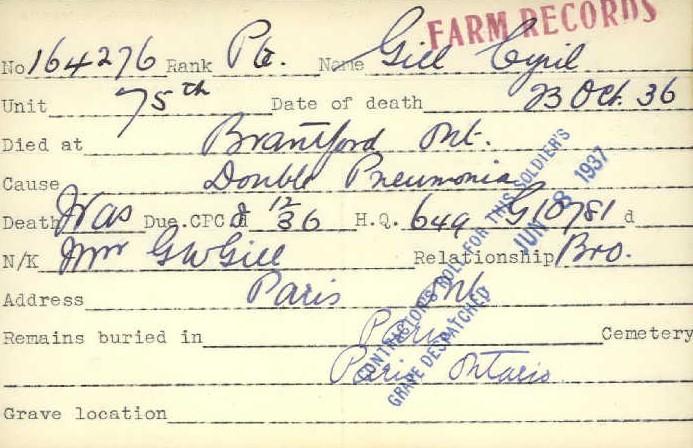 FARM RECORDS
No 164276 Rank Pte. Name Gill Cyril
Unit 75th Date of death 23 Oct. 36
Died at Brantford Ont.
Cause Double Pneumonia
Death Was Due. CPC 12/36 H.Q. 649 G10781 d
N/K Mr GW Gill Relationship Bro.
Address Paris Ont
Remains buried in Paris Cemetery
Paris Ontario
Grave location
CONTRACTOR'S ROLL FOR THIS SOLDIER'S
GRAVE DESPATCHED
JUN 8 1937